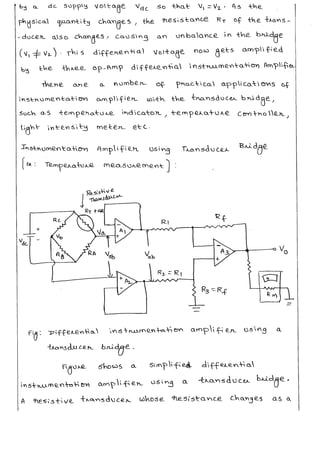 by a dc supply voltage Vdc so that V1 = V2. As the
physical quantity changes, the resistance RT of the trans-
-ducer also changes, causing an unbalance in the bridge
(V1 ≠ V2). This differential voltage now gets amplified
by the three op-Amp differential instrumentation Amplifier.
There are a number of practical applications of
instrumentation amplifier with the transducer bridge,
such as temperature indicator, temperature controller,
light intensity meter etc.
Instrumentation Amplifier using Transducer Bridge
[ex: Temperature measurement]:
Resistive
Transducer
RT + ΔR
RC
A1
R1
Rf
Vdc
+
-
RB
RA
Vab
Vab
A3
Vo
A2
R2 = R1
R3 = Rf
Fig: Differential instrumentation amplifier using a
transducer bridge.
Figure shows a simplified differential
instrumentation amplifier using a transducer bridge.
A resistive transducer whose resistance changes as a